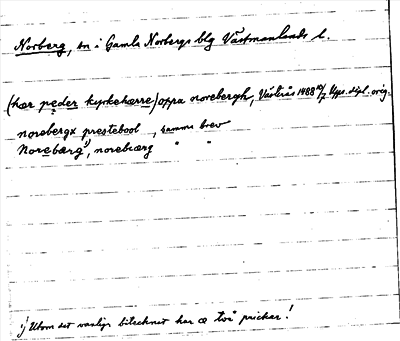 Norberg, sn i Gamla Norbergs blg Västmanlands l.
(hær peder kyrkehærre) oppa norebergh, Västerås 1468 10/7 Upps. dipl. orig.
norebergx prestebool, samma brev
Norebærg¹⁾, norebærg " "
1) Utom det vanliga bitecknet har æ två prickar!